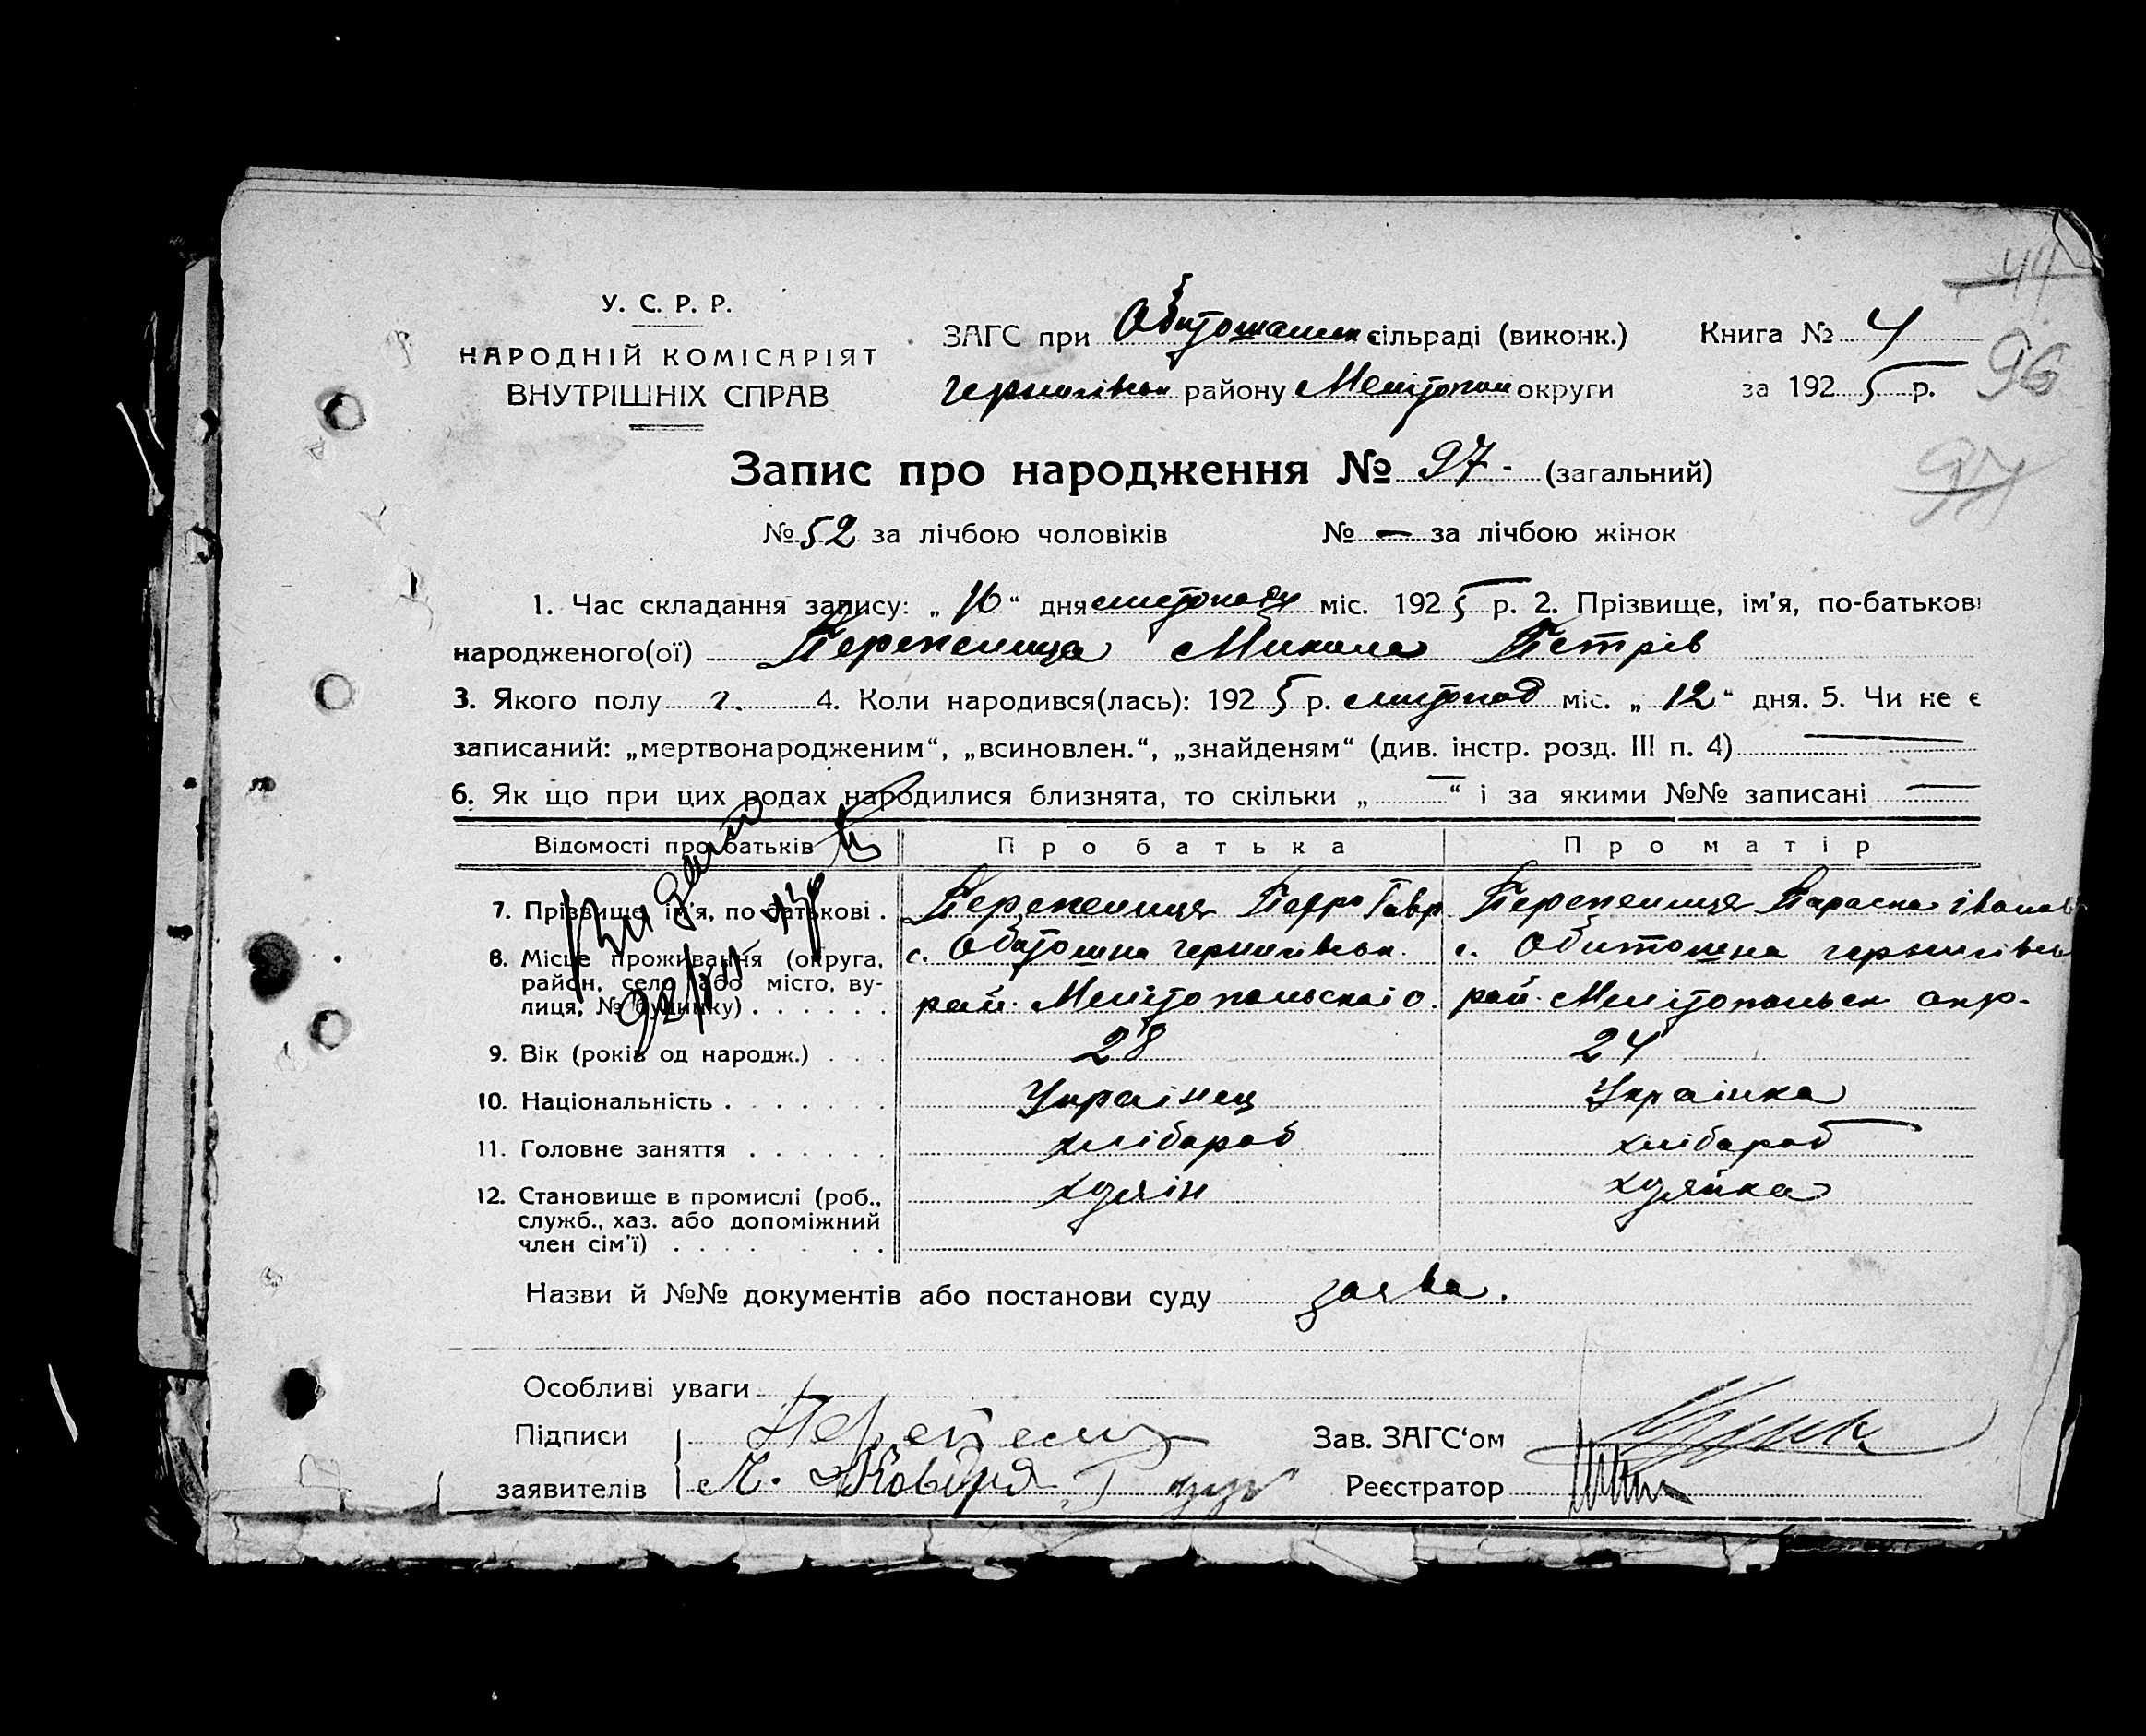 У. С. Р. Р.
НАРОДНІЙ КОМІСАРІЯТ
ВНУТРІШНІХ СПРАВ
ЗАГС при Обитошанск сільраді (виконк.) Книга № 4
чернигівськ району Мелітопол округи за 1925 р.
96
97
Запис про народження № 97 - (загальний)
№ 52 за лічбою чоловіків № — за лічбою жінок
1. Час складання запису: „ 16 “ дня листопаду міс. 1925 р. 2. Прізвище, ім'я, по-батькові
народженого(ої) Перепелица Микола Петрів
3. Якого полу ч. 4. Коли народився(лась): 1925 р. листопад міс. „ 12 “ дня. 5. Чи не є
записаний: „мертвонародженим“, „всиновлен.“, „знайденям“ (див. інстр. розд. III п. 4) —
6. Як що при цих родах народилися близнята, то скільки „ — “ і за якими №№ записані —
Відомості про батьків Про батька Про матір
7. Прізвище, ім'я, по батькові . Перепелиця Педро Гавр Перепелиця Параска іванов
8. Місце проживання (округа, район, село або місто, вулиця, № будинку) . . . . . . с. Обитошна чернигівськ. с. Обитошна чернигівськ
рай. Мелітопольскоі о. рай. Мелітопольск окр.
9. Вік (років од народж.) . . . 28 24
10. Національність . . . . . . Украінец Украінка
11. Головне заняття . . . . . . хлібароб хлібароб
12. Становище в промислі (роб., хозяін хозяйка
служб., хаз. або допоміжний
член сім'ї) . . . . . . .
Видано
Назви й №№ документів або постанови суду заява.
Особливі уваги
Підписи Перепели Зав. ЗАГС‘ом
заявителів Реєстратор